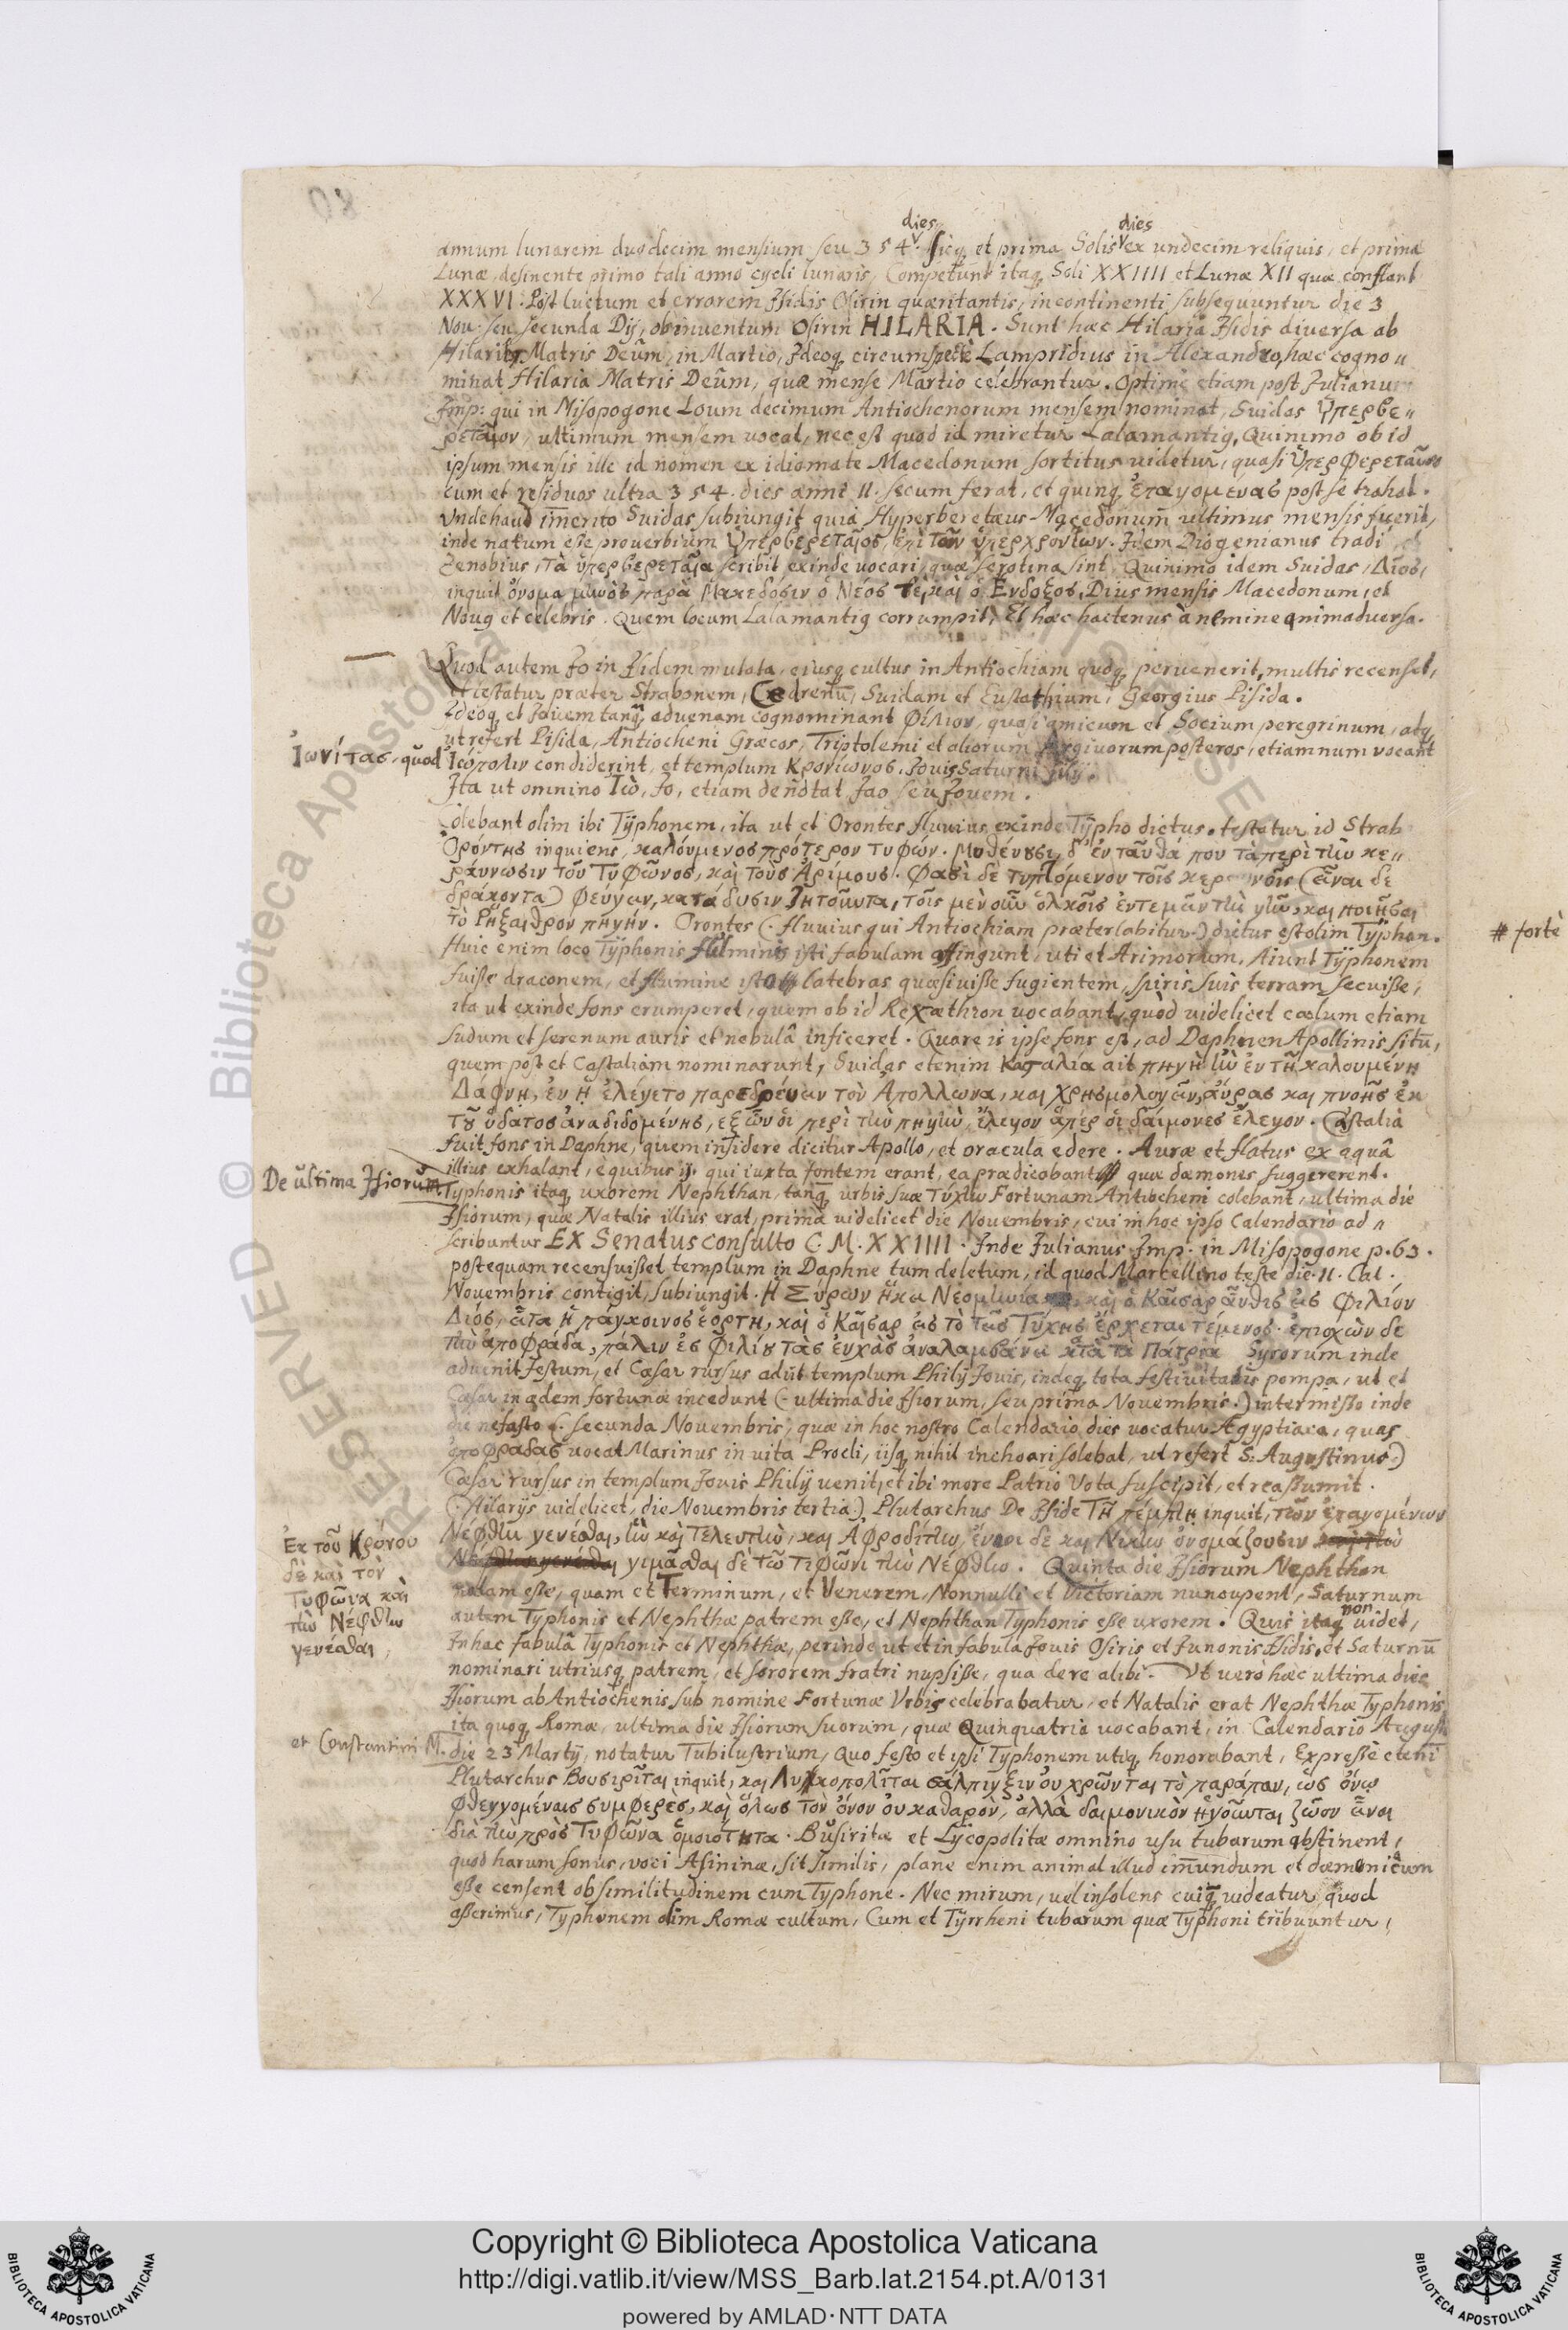 80
annum lunarem duodecim mensium seu 354 dies. sicq; et prima Solis dies ex undecim reliquis, et prima
Lunæ, desinente primo tali anno cycli lunaris, Competunt itaq; Soli XXIIII et Lunæ XII quæ constant
XXXVI. Post luctum et errorem Isidis Osirin quæritantis, incontinenti subsequuntur die 3
Nov. seu secunda Dij, ob inventum Osirin HILARIA. Sunt hæc Hilaria Isidis diversa ab
Hilarijs Matris Deûm, in Martio, Ideoq; circumspectè Lampridius in Alexandro, hæc cogno„
minat Hilaria Matris Deûm, quæ mense Martio celebrantur. Optime etiam post Julianum
Imp: qui in Misopogone Loum decimum Antiochenorum mensem nominat, Suidas Ὑπερβε„
ρεταῖον, ultimum mensem vocat, nec est quod id miretur Lalamantig, Quinimo ob id
ipsum mensis ille id nomen ex idiomate Macedonum sortitus videtur, quasi Ὑπερφερεταῖος
cum et residuos ultra 354. dies anni 11. secum ferat, et quinq; ἐπαγομένας post se trahat.
Unde haud im̄erito Suidas subiungit quia Hyperberetæus Macedonum ultimus mensis fuerit,
inde natum esse proverbium Ὑπερβερεταῖος, ἐπὶ τῶν ὑπερχρονίων. Idem Diogenianus tradi
Zenobius, τὰ ὑπερβερεταῖα scribit exinde vocari, quæ serotina sint. Quinimo idem Suidas, Δῖος,
inquit ὄνομα μηνὸς παρὰ Μακεδόσιν ὁ Νέος τε, καὶ ὁ Ἔνδοξος. Dius mensis Macedonum, et
Novus et celebris. Quem locum Lalamantig corrumpit, Et hæc hactenus à nemine animadversa.
Quod autem Io in Isidem mutata, eiusq; cultus in Antiochiam quoq; pervenerit, multis recenset,
et testatur præter Strabonem, Cedrenū, Suidam et Eustathium, Georgius Pisida.
Ideoq; et Iovem tanq; advenam cognominant Φίλιον, quasi amicum et Socium peregrinum, atq;
ut refert Pisida, Antiocheni Græcos, Triptolemi et aliorum Argivorum posteros, etiamnum vocant
Ἰωνίτας, quod Ἰώπολιν condiderint, et templum Κρονίωνος, Jovis Saturni filij.
Ita ut omnino Ἰὼ, Io, etiam denotat Jao seu Jovem.
Colebant olim ibi Typhonem, ita ut et Orontes fluvius exinde Typho dictus. testatur id Strab
Ὀρόντης inquiens, καλούμενος πρότερον τυφών. Μυθεύουσι δ' ἐνταῦθά που τὰ περὶ τὴν κε„
ράυνωσιν τοῦ Τυφῶνος, καὶ τοὺς Ἀρίμους. Φασὶ δὲ τυπτόμενον τοῖς κεραυνοῖς (εἶναι δε
δράκοντα) φεύγειν, κατάδυσιν ζητοῦντα, τοῖς μὲν οὖν ὁλκοῖς ἐντεμεῖν τὴν γῆν, καὶ ποιῆσαι
τὸ Ῥήξαιθρον πηγήν. Orontes (. fluvius qui Antiochiam præterlabitur.) dictus est olim Typhon.
Huic enim loco Typhonis fulminis isti fabulam affingunt, uti et Arimorum. Aiunt Typhonem
fuisse draconem, et flumine isto latebras quæsivisse fugientem, spiris suis terram secuisse,
ita ut exinde fons erumperet, quem ob id Rexæthron vocabant, quòd videlicet cælum etiam
sudum et serenum auris et nebulâ inficeret. Quare is ipse fons est, ad Daphnen Apollinis sitū,
quem post et Castaliam nominarunt, Suidas etenim Κασταλία ait πηγὴ ἦν ἐν τῇ καλουμένῃ
Δάφνῃ, ἐν ᾗ ἐλέγετο παρεδρεύειν τὸν Ἀπόλλωνα, καὶ χρησμολογεῖν, αὔρας καὶ πνοῆς ἐκ
τοῦ ὕδατος ἀναδιδομένης, ἐξ ὧν οἱ περὶ τὴν πηγὴν, ἔλεγον ἅπερ οἱ δαίμονες ἔλεγον. Castalia
fuit fons in Daphne, quem insidere dicitur Apollo, et oracula edere. Auræ et flatus ex aquâ
illius exhalant, è quibus ij, qui iuxta fontem erant, ea prædicobant quæ dæmones suggererent.
De ultima Isiorum
Typhonis itaq; uxorem Nephthan, tanq; urbis suæ Τύχην Fortunam Antiocheni colebant, ultima die
Isiorum, quæ Natalis illius erat, prima videlicet die Novembris, cui in hoc ipso Calendario ad„
scribuntur EX Senatus consulto C. M. XXIIII. Inde Iulianus Imp. in Misopogone p. 63.
postequam recensuisset templum in Daphne tum deletum, id quod Marcellino teste die. 11. Cal.
Novembris contigit, subiungit. Ἡ Σύρων ἥκει Νεομηνία, καὶ ὁ Καῖσαρ αὖθις εἰς Φιλίου
Διός, εἶτα ἡ πάγκοινος ἑορτὴ, καὶ ὁ Καῖσαρ εἰς τὸ τῆς Τύχης ἔρχεται τέμενος. ἐπισχὼν δε
τὴν ἀποφράδα, πάλιν ἐς Φιλίου τὰς ἐυχὰς ἀναλαμβάνει κατὰ τὰ Πάτρια Syrorum inde
advenit festum, et Cæsar rursus adijt templum Philij Jovis, indeq; tota festivitatis pompa, ut et
Cæsar in ædem fortunæ incedunt (. ultima die Isiorum, seu prima Novembris.) intermisso inde
die nefasto (. secunda Novembris, quæ in hoc nostro Calendario dies vocatur Ægyptiaca, quas
ἀποφράδας vocat Marinus in vita Procli, iisq; nihil inchoari solebat, ut refert S. Augustinus.)
Cæsar rursus in templum Jovis Philij venit, et ibi more Patrio Vota suscipit, et reassumit.
(. Hilarijs videlicet, die Novembris tertia.) Plutarchus De Iside Τῇ πέμπτῃ inquit, τῶν ἐπαγομένων
Νέφθυν γενέσθαι, ἣν καὶ Τελευτὴν, καὶ Ἀφροδίτην, ἔνιοι δὲ καὶ Νίκην ὀνομάζουσιν
Ἐκ τοῦ Κρόνου
δὲ καὶ τὸν
Τυφῶνα καὶ
τὴν Νέφθυν
γενέσθαι,
γήμασθαι δὲ τῷ Τυφῶνι τὴν Νέφθυν. Quinta die Isiorum Nephthan
natam esse, quam et Terminum, et Venerem, Nonnulli et Victoriam nuncupent, Saturnum
autem Typhonis et Nephthæ patrem esse, et Nephthan Typhonis esse uxorem. Quis itaq; non videt,
In hac fabulâ Typhonis et Nephthæ, perinde ut et in fabula Jovis Osiris et Junonis Isidis, et Saturnū
nominari utriusq; patrem, et sororem fratri nupsisse, qua de re alibi. Ut vero hæc ultima dies
Isiorum ab Antiochenis sub nomine Fortunæ Urbis celebrabatur, et Natalis erat Nephthæ Typhonis
ita quoq; Romæ, ultima die Isiorum suorum, quæ Quinquatria vocabant, in Calendario August
et Constantini M. die 23 Martij, notatur Tubilustrium, Quo festo et ipsi Typhonem utiq; honorabant, Expressè etenī
Plutarchus Βουσιρῖται inquit, καὶ Λυκοπολῖται σάλπιγξιν οὐ χρῶνται τὸ παράπαν, ὡς ὄνῳ
φθεγγομέναις συμφερὲς, καὶ ὅλως τὸν ὄνον οὐ καθαρὸν, ἀλλὰ δαιμονικὸν ἡγοῦνται ζῶον εἶναι
διὰ τὴν πρὸς Τυφῶνα ὁμοιότητα. Busiritæ et Lycopolitæ omnino usu tubarum abstinent,
quod harum sonus, voci Asininæ, sit similis, plane enim animal illud im̄undum et dæmonicum
esse censent ob similitudinem cum Typhone. Nec mirum, vel insolens cuiq; videatur quod
asserimus, Typhonem olim Romæ cultum, Cum et Tyrrheni tubarum quæ Typhoni tribuuntur,
# fortè
Copyright © Biblioteca Apostolica Vaticana
http://digi.vatlib.it/view/MSS_Barb.lat.2154.pt.A/0131
powered by AMLAD·NTT DATA
BIBLIOTECA APOSTOLICA VATICANA
BIBLIOTECA APOSTOLICA VATICANA